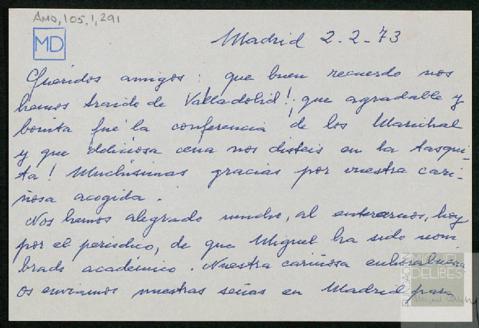 AMD, 105, 1, 291
MD
Madrid 2-2-73
Queridos amigos: que buen recuerdo nos
hemos traido de Valladolid! que agradable y
bonita fué la conferencia de los Marichal
y que deliciosa cena nos disteis en la tasqui-
ta! Muchisimas gracias por vuestra cari-
ñosa acogida.
Nos hemos alegrado mucho, al enterarnos, hoy
por el periodico, de que Miguel ha sido nom-
brado académico. Nuestra cariñosa enhorabuena
Os enviamos nuestras señas en Madrid para
DELIBES